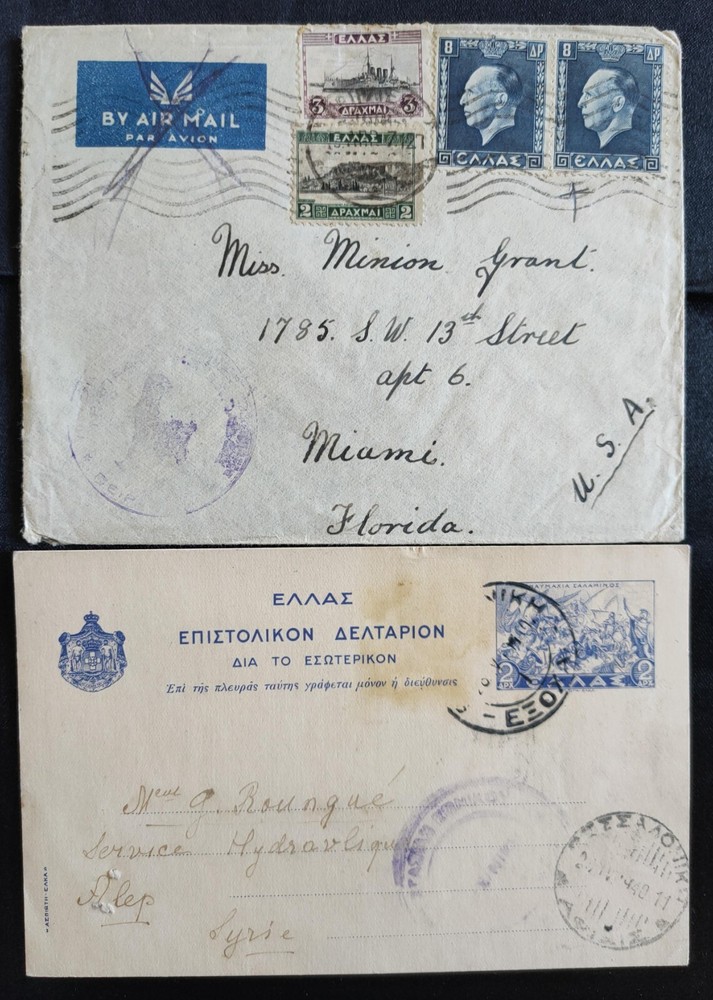 BY AIR MAIL
PAR AVION
ΕΛΛΑΣ
3 ΔΡΑΧΜΑΙ 3
8 ΔΡ
ΕΛΛΑΣ
8 ΔΡ
ΕΛΛΑΣ
ΕΛΛΑΣ
2 ΔΡΑΧΜΑΙ 2
Miss. Minion Grant.
1785. S.W. 13th Street
apt 6.
Miami.
Florida.
U.S.A.
ΕΛΛΑΣ
ΕΠΙΣΤΟΛΙΚΟΝ ΔΕΛΤΑΡΙΟΝ
ΔΙΑ ΤΟ ΕΣΩΤΕΡΙΚΟΝ
Ἐπὶ τῆς πλευρᾶς ταύτης γράφεται μόνον ἡ διεύθυνσις
ΝΑΥΜΑΧΙΑ ΣΑΛΑΜΙΝΟΣ
2 ΔΡΧ ΕΛΛΑΣ 2 ΔΡΧ
Service Hydraulique
Alep
Syrie
ΑΣΠΙΩΤΗ-ΕΛΚΑ